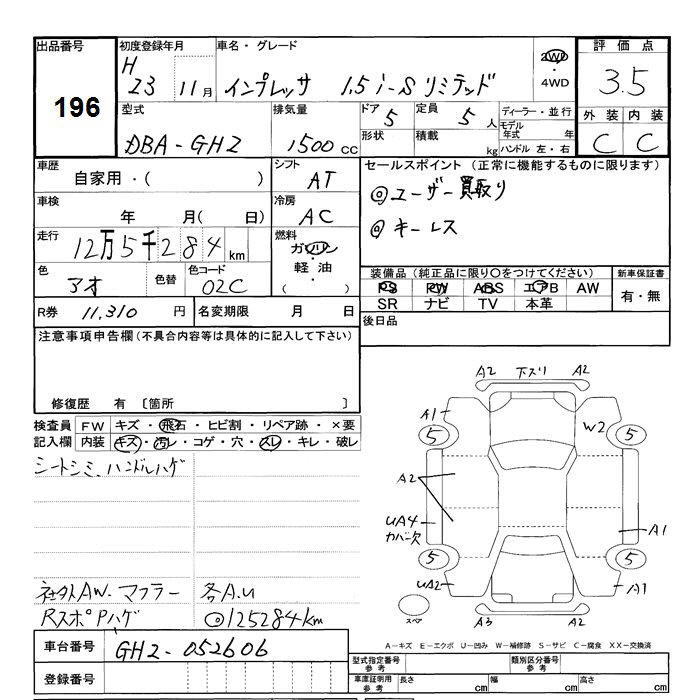 出品番号 初度登録年月 車名・グレード 評価点
196
H 23 11月 インプレッサ 1.5 i-S リミテッド 2WD・4WD 3.5
型式 排気量 ドア 定員 ディーラー・並行 外装 内装
DBA-GH2 1500 CC 5 5人 モデル年式 年 C C
形状 積載 kg ハンドル 左・右
車歴 シフト セールスポイント(正常に機能するものに限ります)
自家用・( ) AT ◎ユーザー買取り
車検 冷房 ◎キーレス
年 月( 日) AC
走行 燃料
12万5千284km ガソリン・軽油・( )
色 色替 色コード 装備品(純正品に限り○をつけてください) 新車保証書
アオ 02C PS PW ABS エアB AW 有・無
SR ナビ TV 本革
R券 11,310円 名変期限 月 日 後日品
注意事項申告欄(不具合内容等は具体的に記入して下さい)
修復歴 有 〔箇所
検査員 FW キズ・飛石・ヒビ割・リペア跡・×要
記入欄 内装 キズ・汚レ・コゲ・穴・スレ・キレ・破レ
シートシミ、ハンドルハゲ
A2 下スリ A2
A1 W2
5 5
A2
UA4 カバー欠 A1
5 5
UA2 A1
スペア A3 A2
社外AW、マフラー 各A.U
RスポPハゲ ◎125284km
A-キズ E-エクボ U-凹み W-補修跡 S-サビ C-腐食 XX-交換済
車台番号 GH2-052606
登録番号
型式指定番号 参考 類別区分番号 参考
車庫証明用 参考 長さ cm 幅 cm 高さ cm